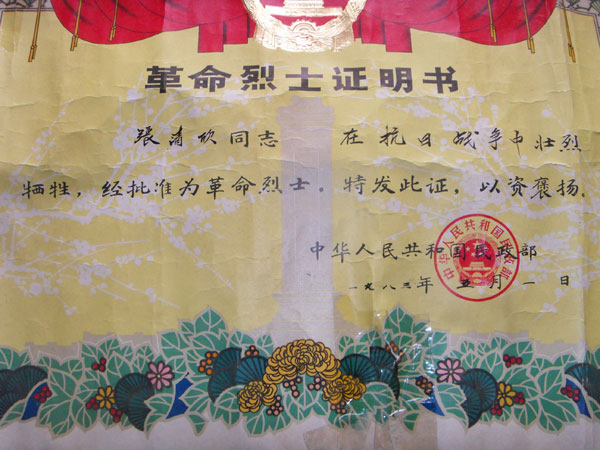 革命烈士证明书
张清欣同志 在抗日战争中壮烈
牺牲，经批准为革命烈士。特发此证，以资褒扬。
中华人民共和国民政部
一九八三年 五月一日
中华人民共和国民政部